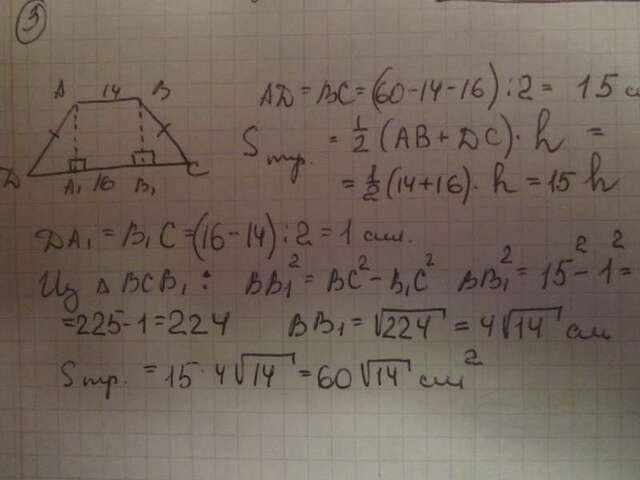 3
A 14 B
D A₁ 16 B₁ C
AD = BC = (60-14-16) : 2 = 15 с
Sтр. = ½ (AB + DC) · h =
= ½ (14+16) · h = 15 h
DA₁ = B₁C = (16-14) : 2 = 1 см.
Из △ BCB₁ : BB₁² = BC² - B₁C² BB₁² = 15² - 1² =
= 225-1 = 224 BB₁ = √224 = 4√14 см
Sтр. = 15 · 4√14 = 60√14 см²